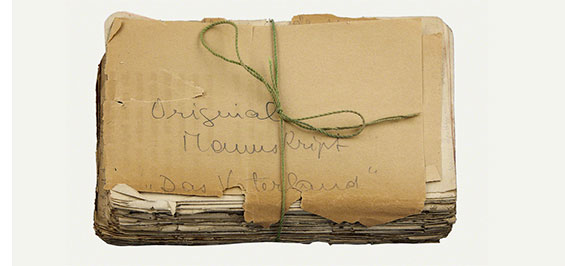 Original
Manuskript
„Das Vaterland"